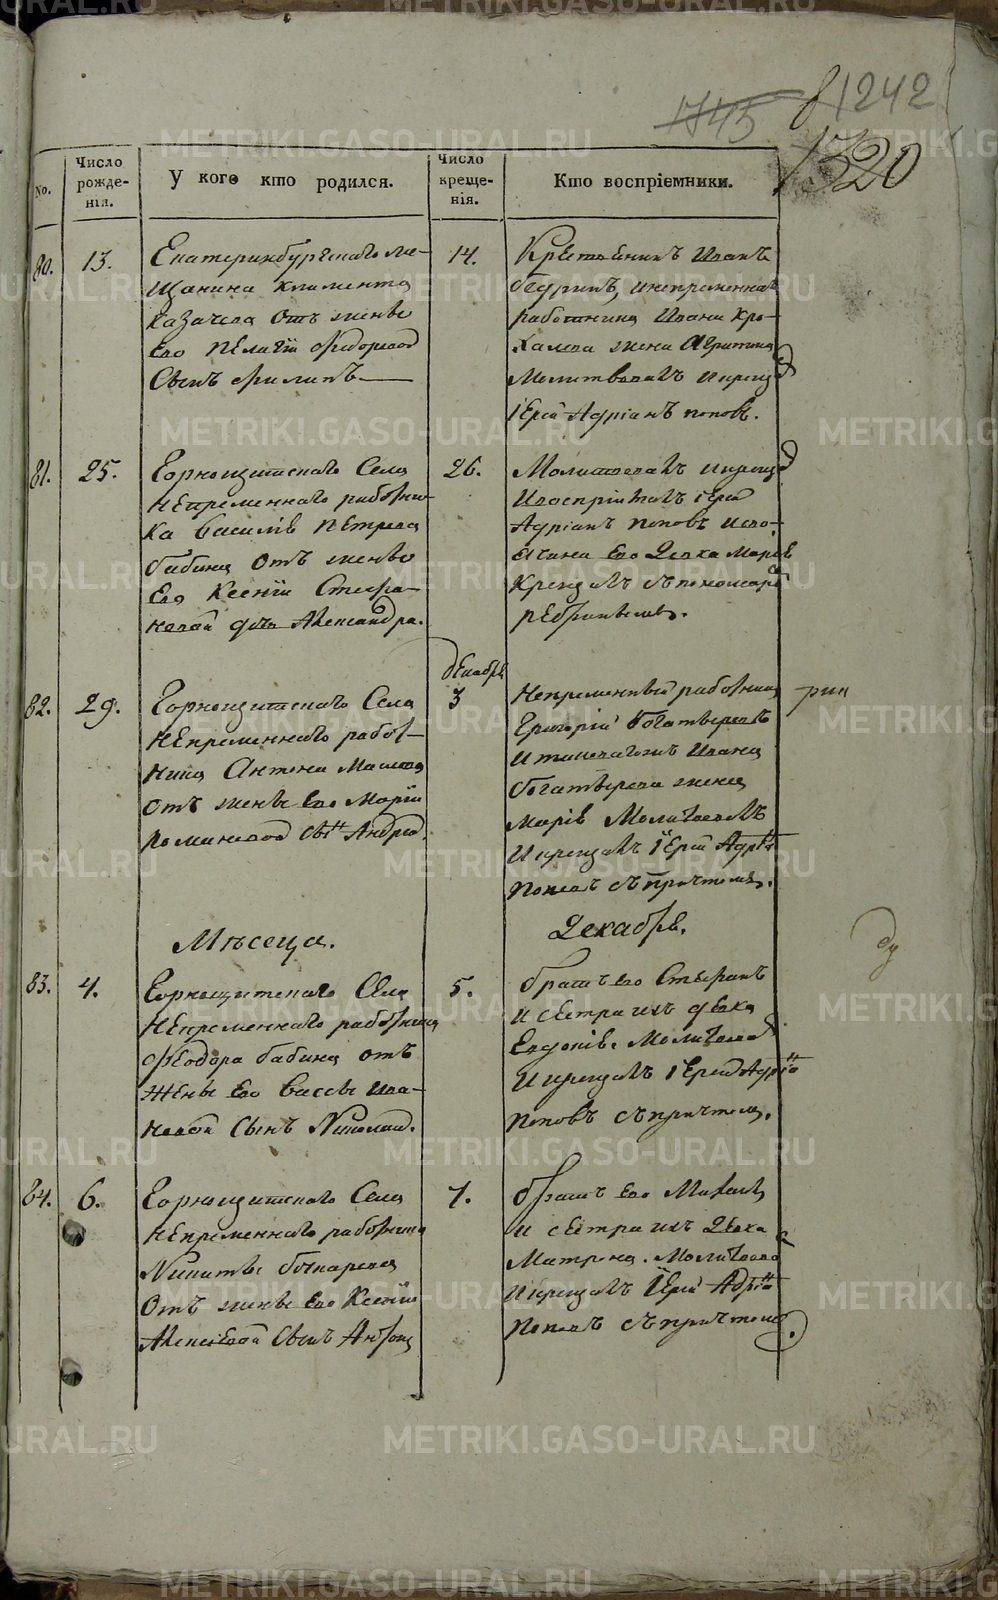 1745
1242
1320
No.
Число рожде-нія.
У кого кто родился.
Число креще-нія.
Кто воспріемники.
80.
13.
Екатеринбургскаго ме-
щанина Климента
Казачева отъ жены
его Пелагіи Федоровой
Сынъ Филипъ
14.
Крестьянинъ Иванъ
и непременнаго
работника Ивана Кро-
халева жена
Молитвовалъ и крещ.
Іерей Адріанъ Поповъ.
81.
25.
Горнощитскаго Села
непременнаго работни-
ка Василія Петрова
бабина отъ жены
его Ксеніи Стефа-
новой дочь Александра.
26.
Молитвовалъ и крещ.
И воспріималъ Іерей
Адріанъ Поповъ и сво-
его Девка Марія
Крещалъ съ пономаремъ
82.
29.
Горнощитскаго Села
непременнаго работ-
ника Антона Маслова
отъ жены его Маріи
Романовой Сынъ Андрей.
декабря
3
Непременный работникъ
Григорій Богатыревъ
Ивана
богатырева жена
Марія Молитвовалъ
И крещалъ Іерей Адріанъ
Поповъ съ причтомъ.
Мѣсеца.
Декабря.
83.
4.
Горнощитскаго Села
непременнаго работника
Феодора бабина отъ
жены его Вассы Ива-
новой Сынъ Николай.
5.
братъ его Стефанъ
И сестра ихъ девка
Евдокія. Молитвовалъ
И крещалъ Іерей Адріанъ
Поповъ съ причтомъ.
84.
6.
Горнощитскаго Села
непременнаго работника
Никиты бочкарева
отъ жены его Ксеніи
Алексеевой Сынъ Антонъ
7.
братъ его Михаилъ
И сестра ихъ Девка
Матрена. Молитвовалъ
И крещалъ Іерей Адріанъ
Поповъ съ причтомъ.
METRIKI.GASO-URAL.RU